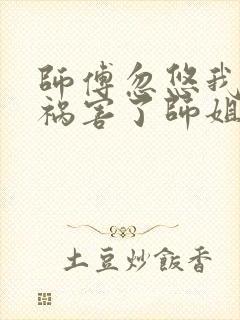 師傅忽悠我
禍害了師姐
土豆炒飯香